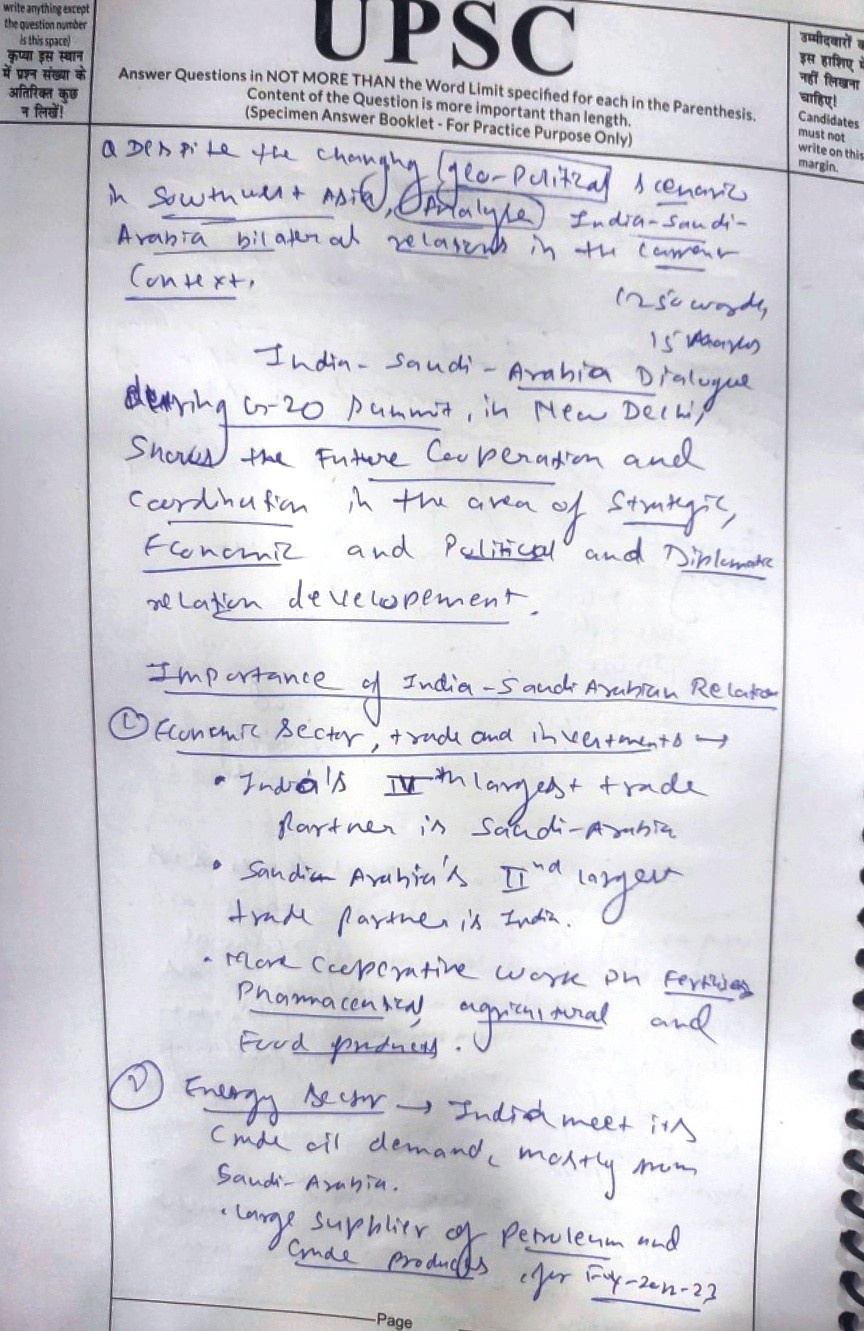 write anything except
the question number
is this space)
कृप्या इस स्थान
में प्रश्न संख्या के
अतिरिक्त कुछ
न लिखें!
UPSC
Answer Questions in NOT MORE THAN the Word Limit specified for each in the Parenthesis.
Content of the Question is more important than length.
(Specimen Answer Booklet - For Practice Purpose Only)
उम्मीदवारों
इस हाशिए
नहीं लिखना
चाहिए!
Candidates
must not
write on this
margin.
Q Despite the changing geo-political scenario
in Southwest Asia, Analyse India-Saudi-
Arabia bilateral relations in the current
Context.
(250 words,
15 Marks
India-Saudi-Arabia Dialogue
during G-20 Summit, in New Delhi,
Shows the Future Cooperation and
Coordination in the area of Strategic,
Economic and Political and Diplomatic
relation developement.
Importance of India-Saudi Arabian Relation
① Economic Sector, trade and investments →
• India's IVth largest trade
Partner is Saudi-Arabia
• Saudi Arabia's IInd largest
trade partner is India.
• More cooperative work on
Pharmaceutical, agricultural and
Food products.
② Energy Sector → India meet its
Crude oil demand, mostly from
Saudi-Arabia.
• large supplier of Petroleum and
Crude products for
Page